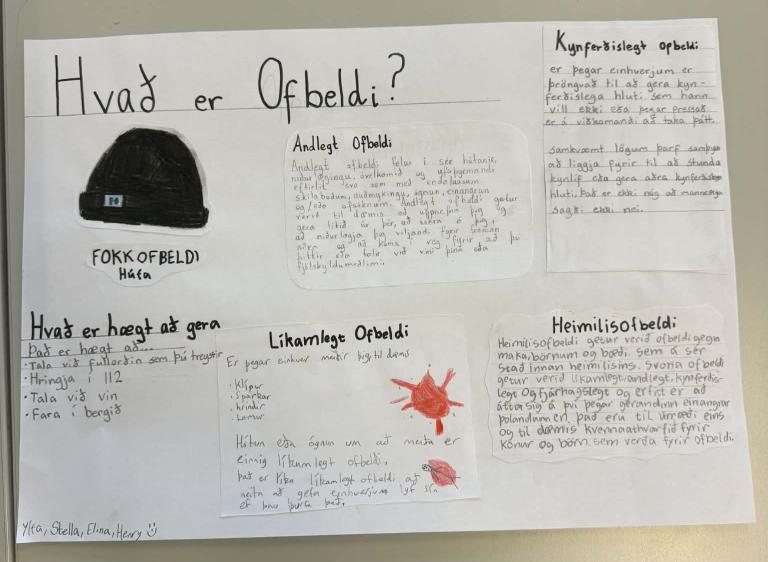 Hvað er Ofbeldi?
FOKK OFBELDI
Húfa
Andlegt Ofbeldi
Andlegt ofbeldi felur í sér hótanir,
niðurlægingu, óvelkomið og yfirþyrmandi
eftirlit svo sem með endalausum
skilaboðum, auðmýkingu, ögnun, einangrun
og/eða afsöknum. Andlegt ofbeldi getur
verið til dæmis að uppnefna þig og
gera lítið úr þér, að öskra á þig,
að niðurlægja þig viljandi fyrir framan
aðra og að koma í veg fyrir að þú
hittir eða talir við vini þína eða
fjölskyldumeðlimi.
Kynferðislegt Ofbeldi
er þegar einhverjum er
þröngvað til að gera kyn-
ferðislega hluti sem hann
vill ekki eða þegar pressað
er á viðkomandi að taka þátt.
samkvæmt lögum þarf samþykki
að liggja fyrir til að stunda
kynlíf eða gera aðra kynferðislega
hluti. Það er ekki nóg að manneskja
sagði ekki nei.
Hvað er hægt að gera
Það er hægt að...
• Tala við fullorðin sem þú treystir
• Hringja í 112
• Tala við vin
• Fara í bergið
Líkamlegt Ofbeldi
Er þegar einhver meiðir þig, til dæmis
• Klípur
• Sparkar
• hrindir
• Lemur
Hótun eða ógnun um að meiða er
einnig líkamlegt ofbeldi.
Það er líka líkamlegt ofbeldi að
neita að gefa einhverjum lyf sín
ef þau þurfa það.
Heimilisofbeldi
Heimilisofbeldi getur verið ofbeldi gegn
maka, börnum og bæði, sem á sér
stað innan heimilisins. Svona ofbeldi
getur verið líkamlegt, andlegt, kynferðis-
legt og fjárhagslegt og erfitt er að
átta sig á því þegar gerandinn einangrar
þolandann en það eru til úrræði eins
og til dæmis kvennaathvarfið fyrir
konur og börn sem verða fyrir ofbeldi.
Stella, Elina, Henry